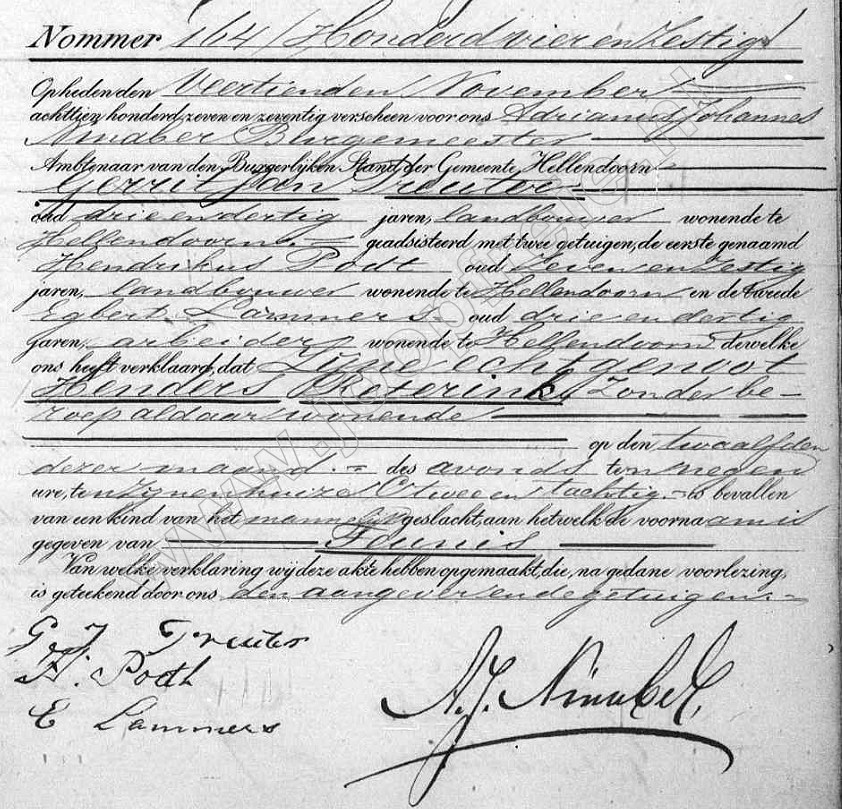 Nommer 164 / Honderd vier en Zestig /
Op heden den Veertienden November
achttien honderd zeven en zeventig verscheen voor ons Adrianus Johannes
Ninaber Burgemeester
Ambtenaar van den Burgerlijken Stand der Gemeente Hellendoorn
Gerrit Jan Treuter
oud drie en dertig jaren, landbouwer wonende te
Hellendoorn geadsisteerd met twee getuigen, de eerste genaamd
Hendrikus Podt oud Zeven en Zestig
jaren, landbouwer wonende te Hellendoorn en de tweede
Egbert Lammers oud drie en dertig
jaren, arbeider wonende te Hellendoorn dewelke
ons heeft verklaard, dat Zijne echtgenoot
Henders Roterink, Zonder be-
roep aldaar wonende
op den twaalfden
dezer maand des avonds ten negen
ure, ten Zijnen huize C twee en tachtig is bevallen
van een kind van het mannelijk geslacht, aan hetwelk de voornaam is
gegeven van Teunis
Van welke verklaring wij deze akte hebben opgemaakt, die, na gedane voorlezing,
is geteekend door ons den aangever en de getuigen.
G. J. Treuter
H. Podt
E Lammers
A. J. Ninaber